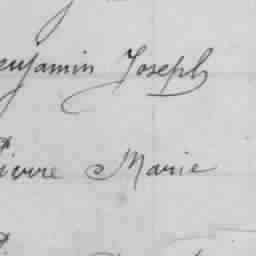 enjamin Joseph
ierre Marie